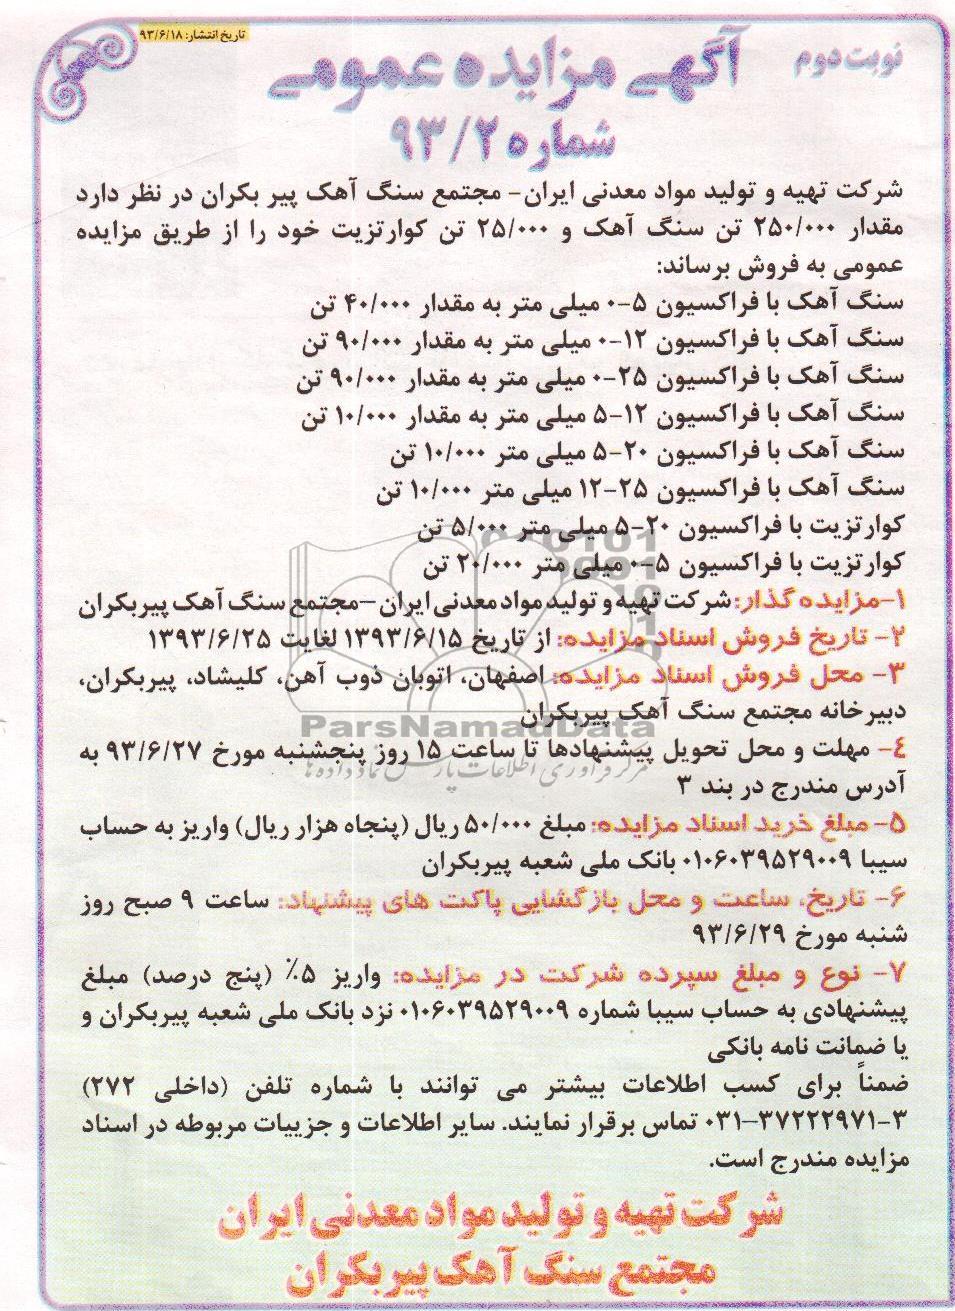 تاریخ انتشار: ۹۳/۶/۱۸
نوبت دوم
آگهی مزایده عمومی
شماره ۹۳/۲
شرکت تهیه و تولید مواد معدنی ایران- مجتمع سنگ آهک پیر بکران در نظر دارد
مقدار ۲۵۰/۰۰۰ تن سنگ آهک و ۲۵/۰۰۰ تن کوارتزیت خود را از طریق مزایده
عمومی به فروش برساند:
سنگ آهک با فراکسیون ۵-۰ میلی متر به مقدار ۴۰/۰۰۰ تن
سنگ آهک با فراکسیون ۱۲-۰ میلی متر به مقدار ۹۰/۰۰۰ تن
سنگ آهک با فراکسیون ۲۵-۰ میلی متر به مقدار ۹۰/۰۰۰ تن
سنگ آهک با فراکسیون ۱۲-۵ میلی متر به مقدار ۱۰/۰۰۰ تن
سنگ آهک با فراکسیون ۲۰-۵ میلی متر ۱۰/۰۰۰ تن
سنگ آهک با فراکسیون ۲۵-۱۲ میلی متر ۱۰/۰۰۰ تن
کوارتزیت با فراکسیون ۲۰-۵ میلی متر ۵/۰۰۰ تن
کوارتزیت با فراکسیون ۵-۰ میلی متر ۲۰/۰۰۰ تن
۱-مزایده گذار: شرکت تهیه و تولید مواد معدنی ایران -مجتمع سنگ آهک پیربکران
۲- تاریخ فروش اسناد مزایده: از تاریخ ۱۳۹۳/۶/۱۵ لغایت ۱۳۹۳/۶/۲۵
۳- محل فروش اسناد مزایده: اصفهان، اتوبان ذوب آهن، کلیشاد، پیربکران،
دبیرخانه مجتمع سنگ آهک پیربکران
ParsNamadData
مرکز فرآوری اطلاعات پارس نماد داده ها
۴- مهلت و محل تحویل پیشنهادها تا ساعت ۱۵ روز پنجشنبه مورخ ۹۳/۶/۲۷ به
آدرس مندرج در بند ۳
۵- مبلغ خرید اسناد مزایده: مبلغ ۵۰/۰۰۰ ریال (پنجاه هزار ریال) واریز به حساب
سیبا ۰۱۰۶۰۳۹۵۲۹۰۰۹ بانک ملی شعبه پیربکران
۶- تاریخ، ساعت و محل بازگشایی پاکت های پیشنهاد: ساعت ۹ صبح روز
شنبه مورخ ۹۳/۶/۲۹
۷- نوع و مبلغ سپرده شرکت در مزایده: واریز ۵٪ (پنج درصد) مبلغ
پیشنهادی به حساب سیبا شماره ۰۱۰۶۰۳۹۵۲۹۰۰۹ نزد بانک ملی شعبه پیربکران و
یا ضمانت نامه بانکی
ضمناً برای کسب اطلاعات بیشتر می توانند با شماره تلفن (داخلی ۲۷۲)
۳-۳۷۲۲۲۹۷۱-۰۳۱ تماس برقرار نمایند. سایر اطلاعات و جزییات مربوطه در اسناد
مزایده مندرج است.
شرکت تهیه و تولید مواد معدنی ایران
مجتمع سنگ آهک پیربکران